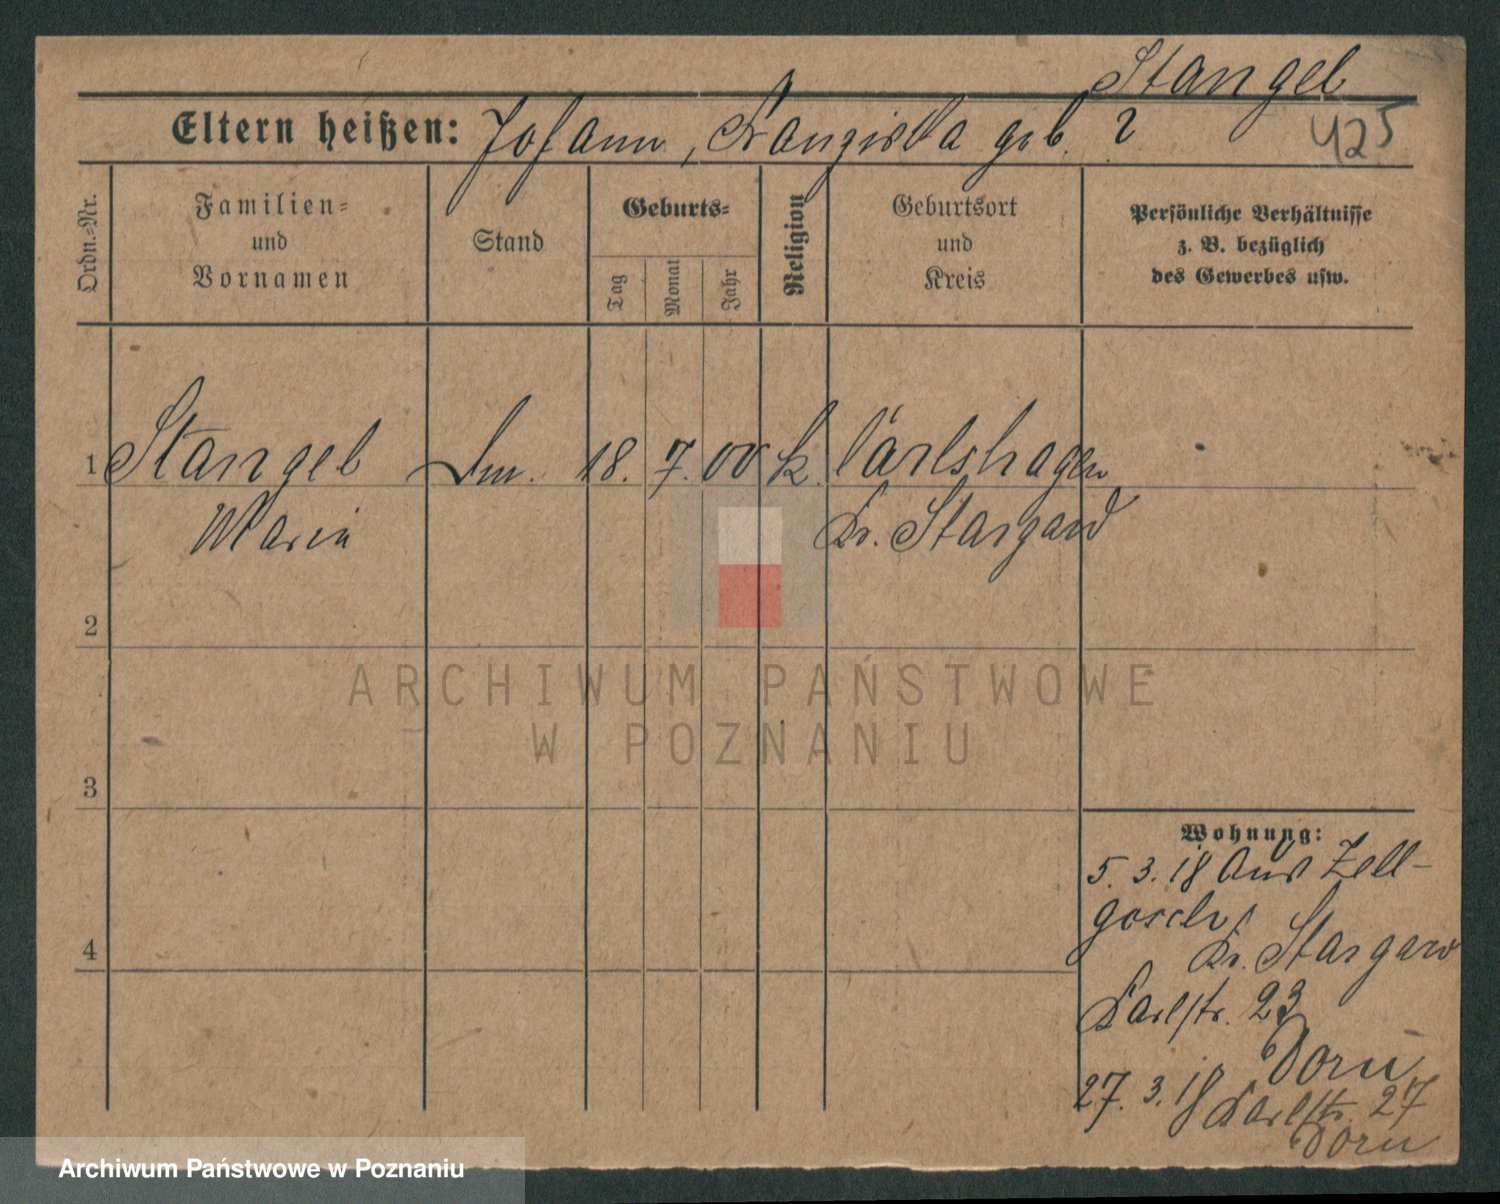 Stangel
425
Eltern heißen: Johann, Franziska geb. ?
Ordn.-Nr.
Familien-
und
Vornamen
Stand
Geburts-
Tag
Monat
Jahr
Religion
Geburtsort
und
Kreis
Persönliche Verhältnisse
z. B. bezüglich
des Gewerbes usw.
1 Stangel 18. 7. 00 k. Carlshagen
Maria Kr. Stargard
2
3
4
Wohnung:
5. 3. 18 Aus Zell-
gosch,
Kr. Stargard
Karlstr. 23
27. 3. 18 Karlstr. 27
ARCHIWUM PAŃSTWOWE
W POZNANIU
Archiwum Państwowe w Poznaniu